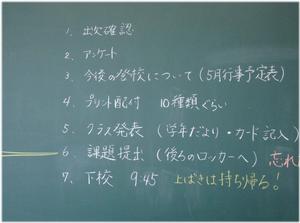 1. 出欠確認
2. アンケート
3. 今後の登校について (5月行事予定表)
4. プリント配付 10種類ぐらい
5. クラス発表 (学年だより・カード記入)
6. 課題提出 (後ろのロッカーへ) 忘れ
7. 下校 9:45 上ばきは持ち帰る!